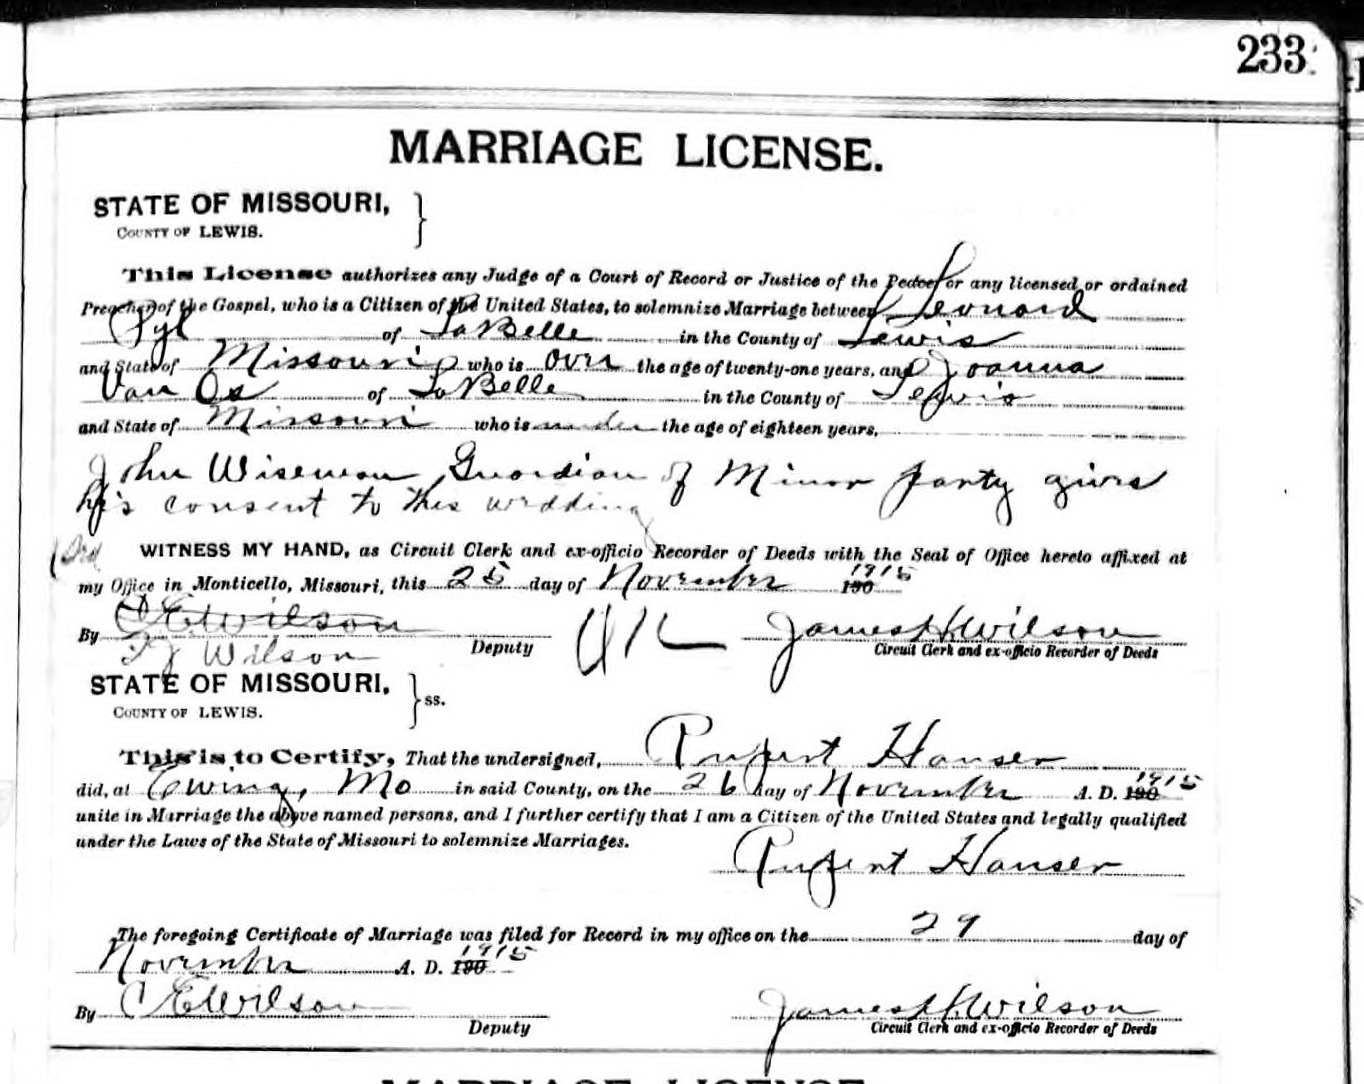 233
MARRIAGE LICENSE.
STATE OF MISSOURI,
COUNTY OF LEWIS.
This License authorizes any Judge of a Court of Record or Justice of the Peace, or any licensed or ordained
Preacher of the Gospel, who is a Citizen of the United States, to solemnize Marriage between Leonard
Pyl of LaBelle in the County of Lewis
and State of Missouri who is over the age of twenty-one years, and Joanna
Van Os of LaBelle in the County of Lewis
and State of Missouri who is under the age of eighteen years,
John Wiseman Guardian of Minor party gives
his consent to this wedding
WITNESS MY HAND, as Circuit Clerk and ex-officio Recorder of Deeds with the Seal of Office hereto affixed at
my Office in Monticello, Missouri, this 25 day of November 190 1915
By C E Wilson Deputy James H Wilson
Wilson Circuit Clerk and ex-officio Recorder of Deeds
STATE OF MISSOURI,
COUNTY OF LEWIS. ss.
This is to Certify, That the undersigned, Rupert Hanser
did, at Ewing, Mo in said County, on the 26 day of November A. D. 190 1915
unite in Marriage the above named persons, and I further certify that I am a Citizen of the United States and legally qualified
under the Laws of the State of Missouri to solemnize Marriages.
Rupert Hanser
The foregoing Certificate of Marriage was filed for Record in my office on the 29 day of
November A. D. 190 1915
By C E Wilson Deputy James H Wilson
Circuit Clerk and ex-officio Recorder of Deeds
MARRIAGE LICENSE